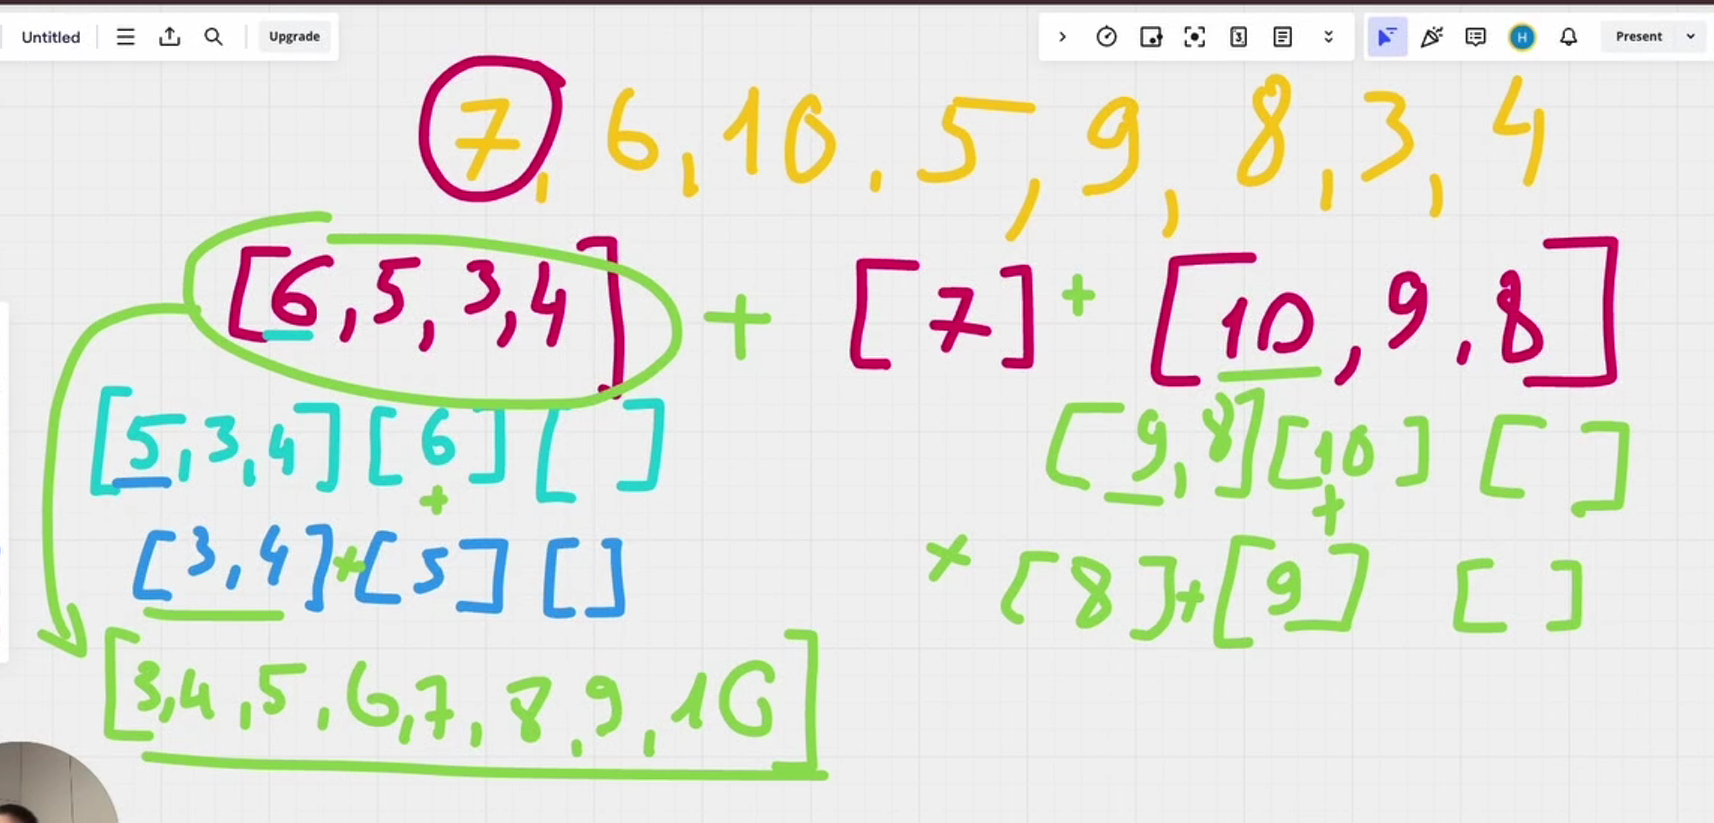 Untitled Upgrade 3 H Present
7, 6, 10, 5, 9, 8, 3, 4
[6, 5, 3, 4] + [7] + [10, 9, 8]
[5, 3, 4] [6] [ ] [9, 8] [10] [ ]
+ +
[3, 4] + [5] [ ] + [8] + [9] [ ]
[3, 4, 5, 6, 7, 8, 9, 10]